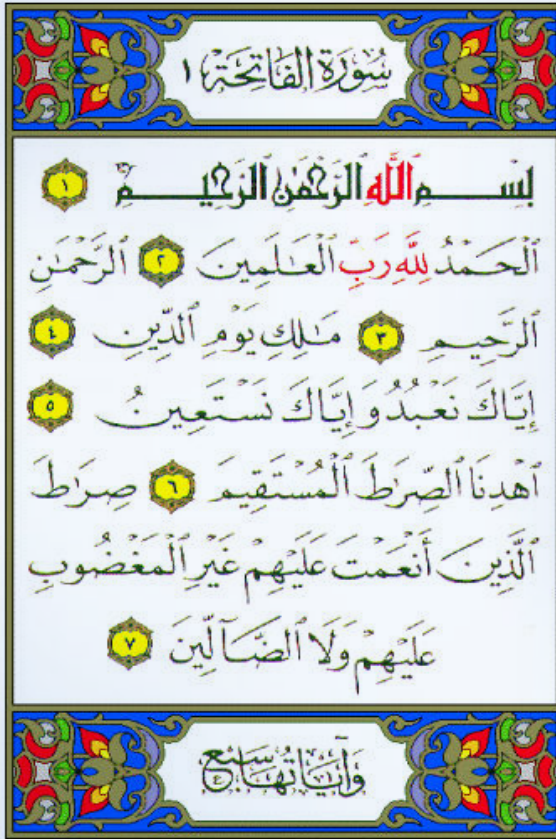 سُورَة الفَاتِحَة ١
بِسْمِ ٱللَّهِ ٱلرَّحْمَٰنِ ٱلرَّحِيمِ ١
ٱلْحَمْدُ لِلَّهِ رَبِّ ٱلْعَٰلَمِينَ ٢ ٱلرَّحْمَٰنِ
ٱلرَّحِيمِ ٣ مَٰلِكِ يَوْمِ ٱلدِّينِ ٤
إِيَّاكَ نَعْبُدُ وَإِيَّاكَ نَسْتَعِينُ ٥
ٱهْدِنَا ٱلصِّرَٰطَ ٱلْمُسْتَقِيمَ ٦ صِرَٰطَ
ٱلَّذِينَ أَنْعَمْتَ عَلَيْهِمْ غَيْرِ ٱلْمَغْضُوبِ
عَلَيْهِمْ وَلَا ٱلضَّآلِّينَ ٧
وَآيَاتُهَا سَبْعٌ